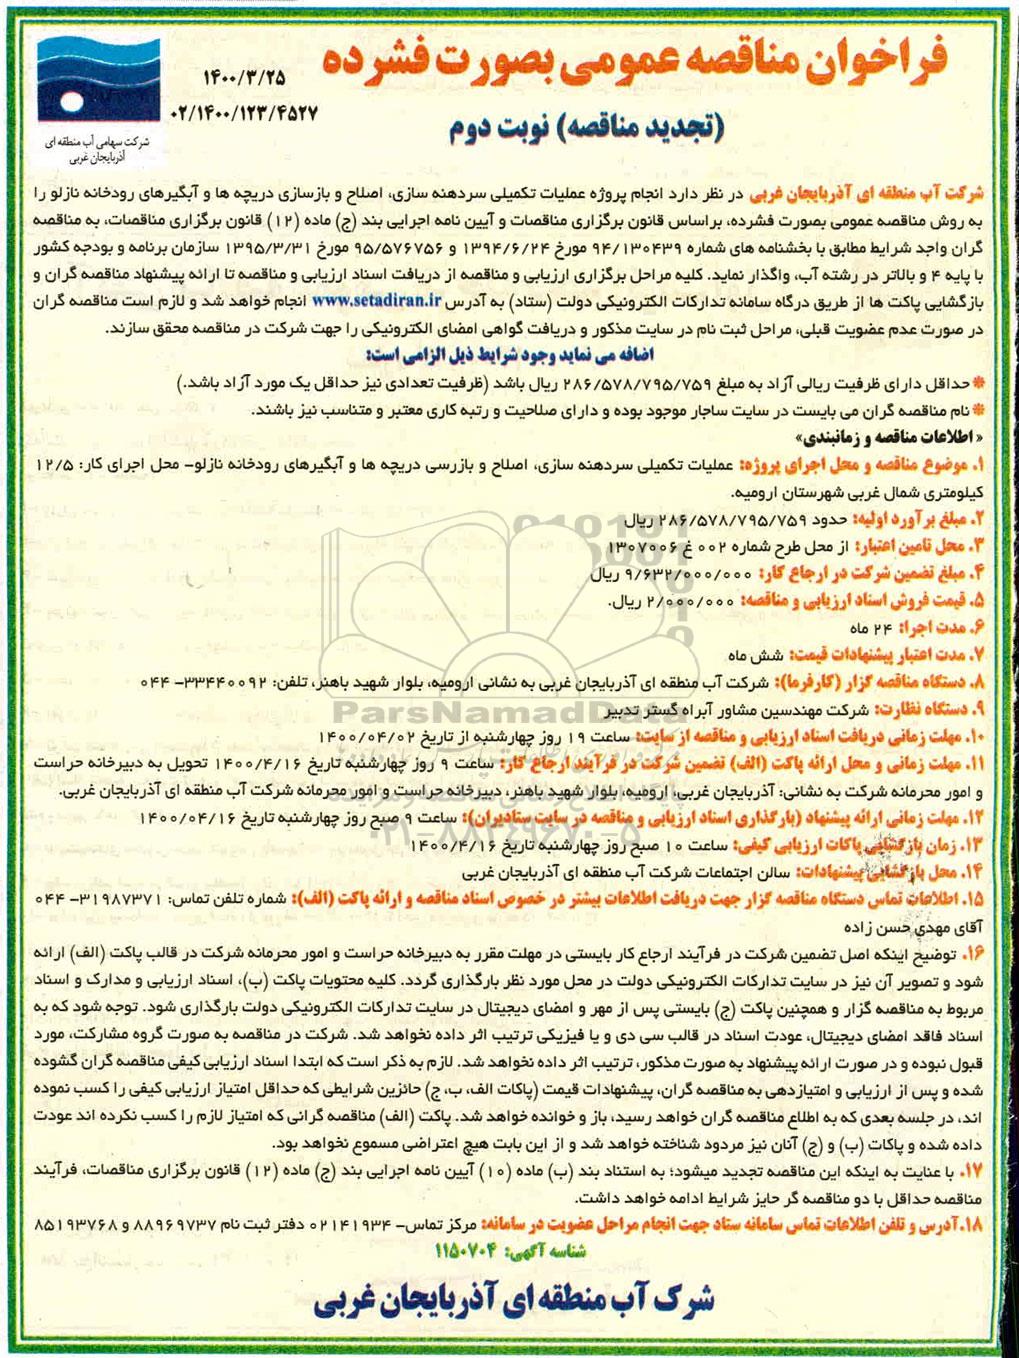 فراخوان مناقصه عمومی بصورت فشرده
۱۴۰۰/۳/۲۵
۰۲/۱۴۰۰/۱۲۳/۴۵۲۷
(تجدید مناقصه) نوبت دوم
شرکت سهامی آب منطقه ای
آذربایجان غربی
شرکت آب منطقه ای آذربایجان غربی در نظر دارد انجام پروژه عملیات تکمیلی سردهنه سازی، اصلاح و بازسازی دریچه ها و آبگیرهای رودخانه نازلو را
به روش مناقصه عمومی بصورت فشرده، براساس قانون برگزاری مناقصات و آیین نامه اجرایی بند (ج) ماده (۱۲) قانون برگزاری مناقصات، به مناقصه
گران واجد شرایط مطابق با بخشنامه های شماره ۹۴/۱۳۰۴۳۹ مورخ ۱۳۹۴/۶/۲۴ و ۹۵/۵۷۶۷۵۶ مورخ ۱۳۹۵/۳/۳۱ سازمان برنامه و بودجه کشور
با پایه ۴ و بالاتر در رشته آب، واگذار نماید. کلیه مراحل برگزاری ارزیابی و مناقصه از دریافت اسناد ارزیابی و مناقصه تا ارائه پیشنهاد مناقصه گران و
بازگشایی پاکت ها از طریق درگاه سامانه تدارکات الکترونیکی دولت (ستاد) به آدرس www.setadiran.ir انجام خواهد شد و لازم است مناقصه گران
در صورت عدم عضویت قبلی، مراحل ثبت نام در سایت مذکور و دریافت گواهی امضای الکترونیکی را جهت شرکت در مناقصه محقق سازند.
اضافه می نماید وجود شرایط ذیل الزامی است:
* حداقل دارای ظرفیت ریالی آزاد به مبلغ ۲۸۶/۵۷۸/۷۹۵/۷۵۹ ریال باشد (ظرفیت تعدادی نیز حداقل یک مورد آزاد باشد.)
* نام مناقصه گران می بایست در سایت ساجار موجود بوده و دارای صلاحیت و رتبه کاری معتبر و متناسب نیز باشند.
«اطلاعات مناقصه و زمانبندی»
۱. موضوع مناقصه و محل اجرای پروژه: عملیات تکمیلی سردهنه سازی، اصلاح و بازرسی دریچه ها و آبگیرهای رودخانه نازلو- محل اجرای کار: ۱۲/۵
کیلومتری شمال غربی شهرستان ارومیه.
۲. مبلغ برآورد اولیه: حدود ۲۸۶/۵۷۸/۷۹۵/۷۵۹ ریال
۳. محل تامین اعتبار: از محل طرح شماره ۰۰۲ غ ۱۳۰۷۰۰۶
۴. مبلغ تضمین شرکت در ارجاع کار: ۹/۶۳۲/۰۰۰/۰۰۰ ریال
۵. قیمت فروش اسناد ارزیابی و مناقصه: ۲/۰۰۰/۰۰۰ ریال.
۶. مدت اجرا: ۲۴ ماه
۷. مدت اعتبار پیشنهادات قیمت: شش ماه
۸. دستگاه مناقصه گزار (کارفرما): شرکت آب منطقه ای آذربایجان غربی به نشانی ارومیه، بلوار شهید باهنر، تلفن: ۳۳۴۴۰۰۹۲- ۰۴۴
۹. دستگاه نظارت: شرکت مهندسین مشاور آبراه گستر تدبیر
ParsNamadData
۱۰. مهلت زمانی دریافت اسناد ارزیابی و مناقصه از سایت: ساعت ۱۹ روز چهارشنبه از تاریخ ۱۴۰۰/۰۴/۰۲
۱۱. مهلت زمانی و محل ارائه پاکت (الف) تضمین شرکت در فرآیند ارجاع کار: ساعت ۹ روز چهارشنبه تاریخ ۱۴۰۰/۴/۱۶ تحویل به دبیرخانه حراست
و امور محرمانه شرکت به نشانی: آذربایجان غربی، ارومیه، بلوار شهید باهنر، دبیرخانه حراست و امور محرمانه شرکت آب منطقه ای آذربایجان غربی.
۱۲. مهلت زمانی ارائه پیشنهاد (بارگذاری اسناد ارزیابی و مناقصه در سایت ستادیران): ساعت ۹ صبح روز چهارشنبه تاریخ ۱۴۰۰/۰۴/۱۶
۰۲۱-۸۸۳۴۹۶۷۰-۵
۱۳. زمان بازگشایی پاکات ارزیابی کیفی: ساعت ۱۰ صبح روز چهارشنبه تاریخ ۱۴۰۰/۴/۱۶
۱۴. محل بازگشایی پیشنهادات: سالن اجتماعات شرکت آب منطقه ای آذربایجان غربی
۱۵. اطلاعات تماس دستگاه مناقصه گزار جهت دریافت اطلاعات بیشتر در خصوص اسناد مناقصه و ارائه پاکت (الف): شماره تلفن تماس: ۳۱۹۸۷۳۷۱- ۰۴۴
آقای مهدی حسن زاده
۱۶. توضیح اینکه اصل تضمین شرکت در فرآیند ارجاع کار بایستی در مهلت مقرر به دبیرخانه حراست و امور محرمانه شرکت در قالب پاکت (الف) ارائه
شود و تصویر آن نیز در سایت تدارکات الکترونیکی دولت در محل مورد نظر بارگذاری گردد. کلیه محتویات پاکت (ب)، اسناد ارزیابی و مدارک و اسناد
مربوط به مناقصه گزار و همچنین پاکت (ج) بایستی پس از مهر و امضای دیجیتال در سایت تدارکات الکترونیکی دولت بارگذاری شود. توجه شود که به
اسناد فاقد امضای دیجیتال، عودت اسناد در قالب سی دی و یا فیزیکی ترتیب اثر داده نخواهد شد. شرکت در مناقصه به صورت گروه مشارکت، مورد
قبول نبوده و در صورت ارائه پیشنهاد به صورت مذکور، ترتیب اثر داده نخواهد شد. لازم به ذکر است که ابتدا اسناد ارزیابی کیفی مناقصه گران گشوده
شده و پس از ارزیابی و امتیازدهی به مناقصه گران، پیشنهادات قیمت (پاکات الف، ب، ج) حائزین شرایطی که حداقل امتیاز ارزیابی کیفی را کسب نموده
اند، در جلسه بعدی که به اطلاع مناقصه گران خواهد رسید، باز و خوانده خواهد شد. پاکت (الف) مناقصه گرانی که امتیاز لازم را کسب نکرده اند عودت
داده شده و پاکات (ب) و (ج) آنان نیز مردود شناخته خواهد شد و از این بابت هیچ اعتراضی مسموع نخواهد بود.
۱۷. با عنایت به اینکه این مناقصه تجدید میشود: به استناد بند (ب) ماده (۱۰) آیین نامه اجرایی بند (ج) ماده (۱۲) قانون برگزاری مناقصات، فرآیند
مناقصه حداقل با دو مناقصه گر حایز شرایط ادامه خواهد داشت.
۱۸. آدرس و تلفن اطلاعات تماس سامانه ستاد جهت انجام مراحل عضویت در سامانه: مرکز تماس- ۰۲۱۴۱۹۳۴ دفتر ثبت نام ۸۸۹۶۹۷۳۷ و ۸۵۱۹۳۷۶۸
شناسه آگهی: ۱۱۵۰۷۰۴
شرک آب منطقه ای آذربایجان غربی